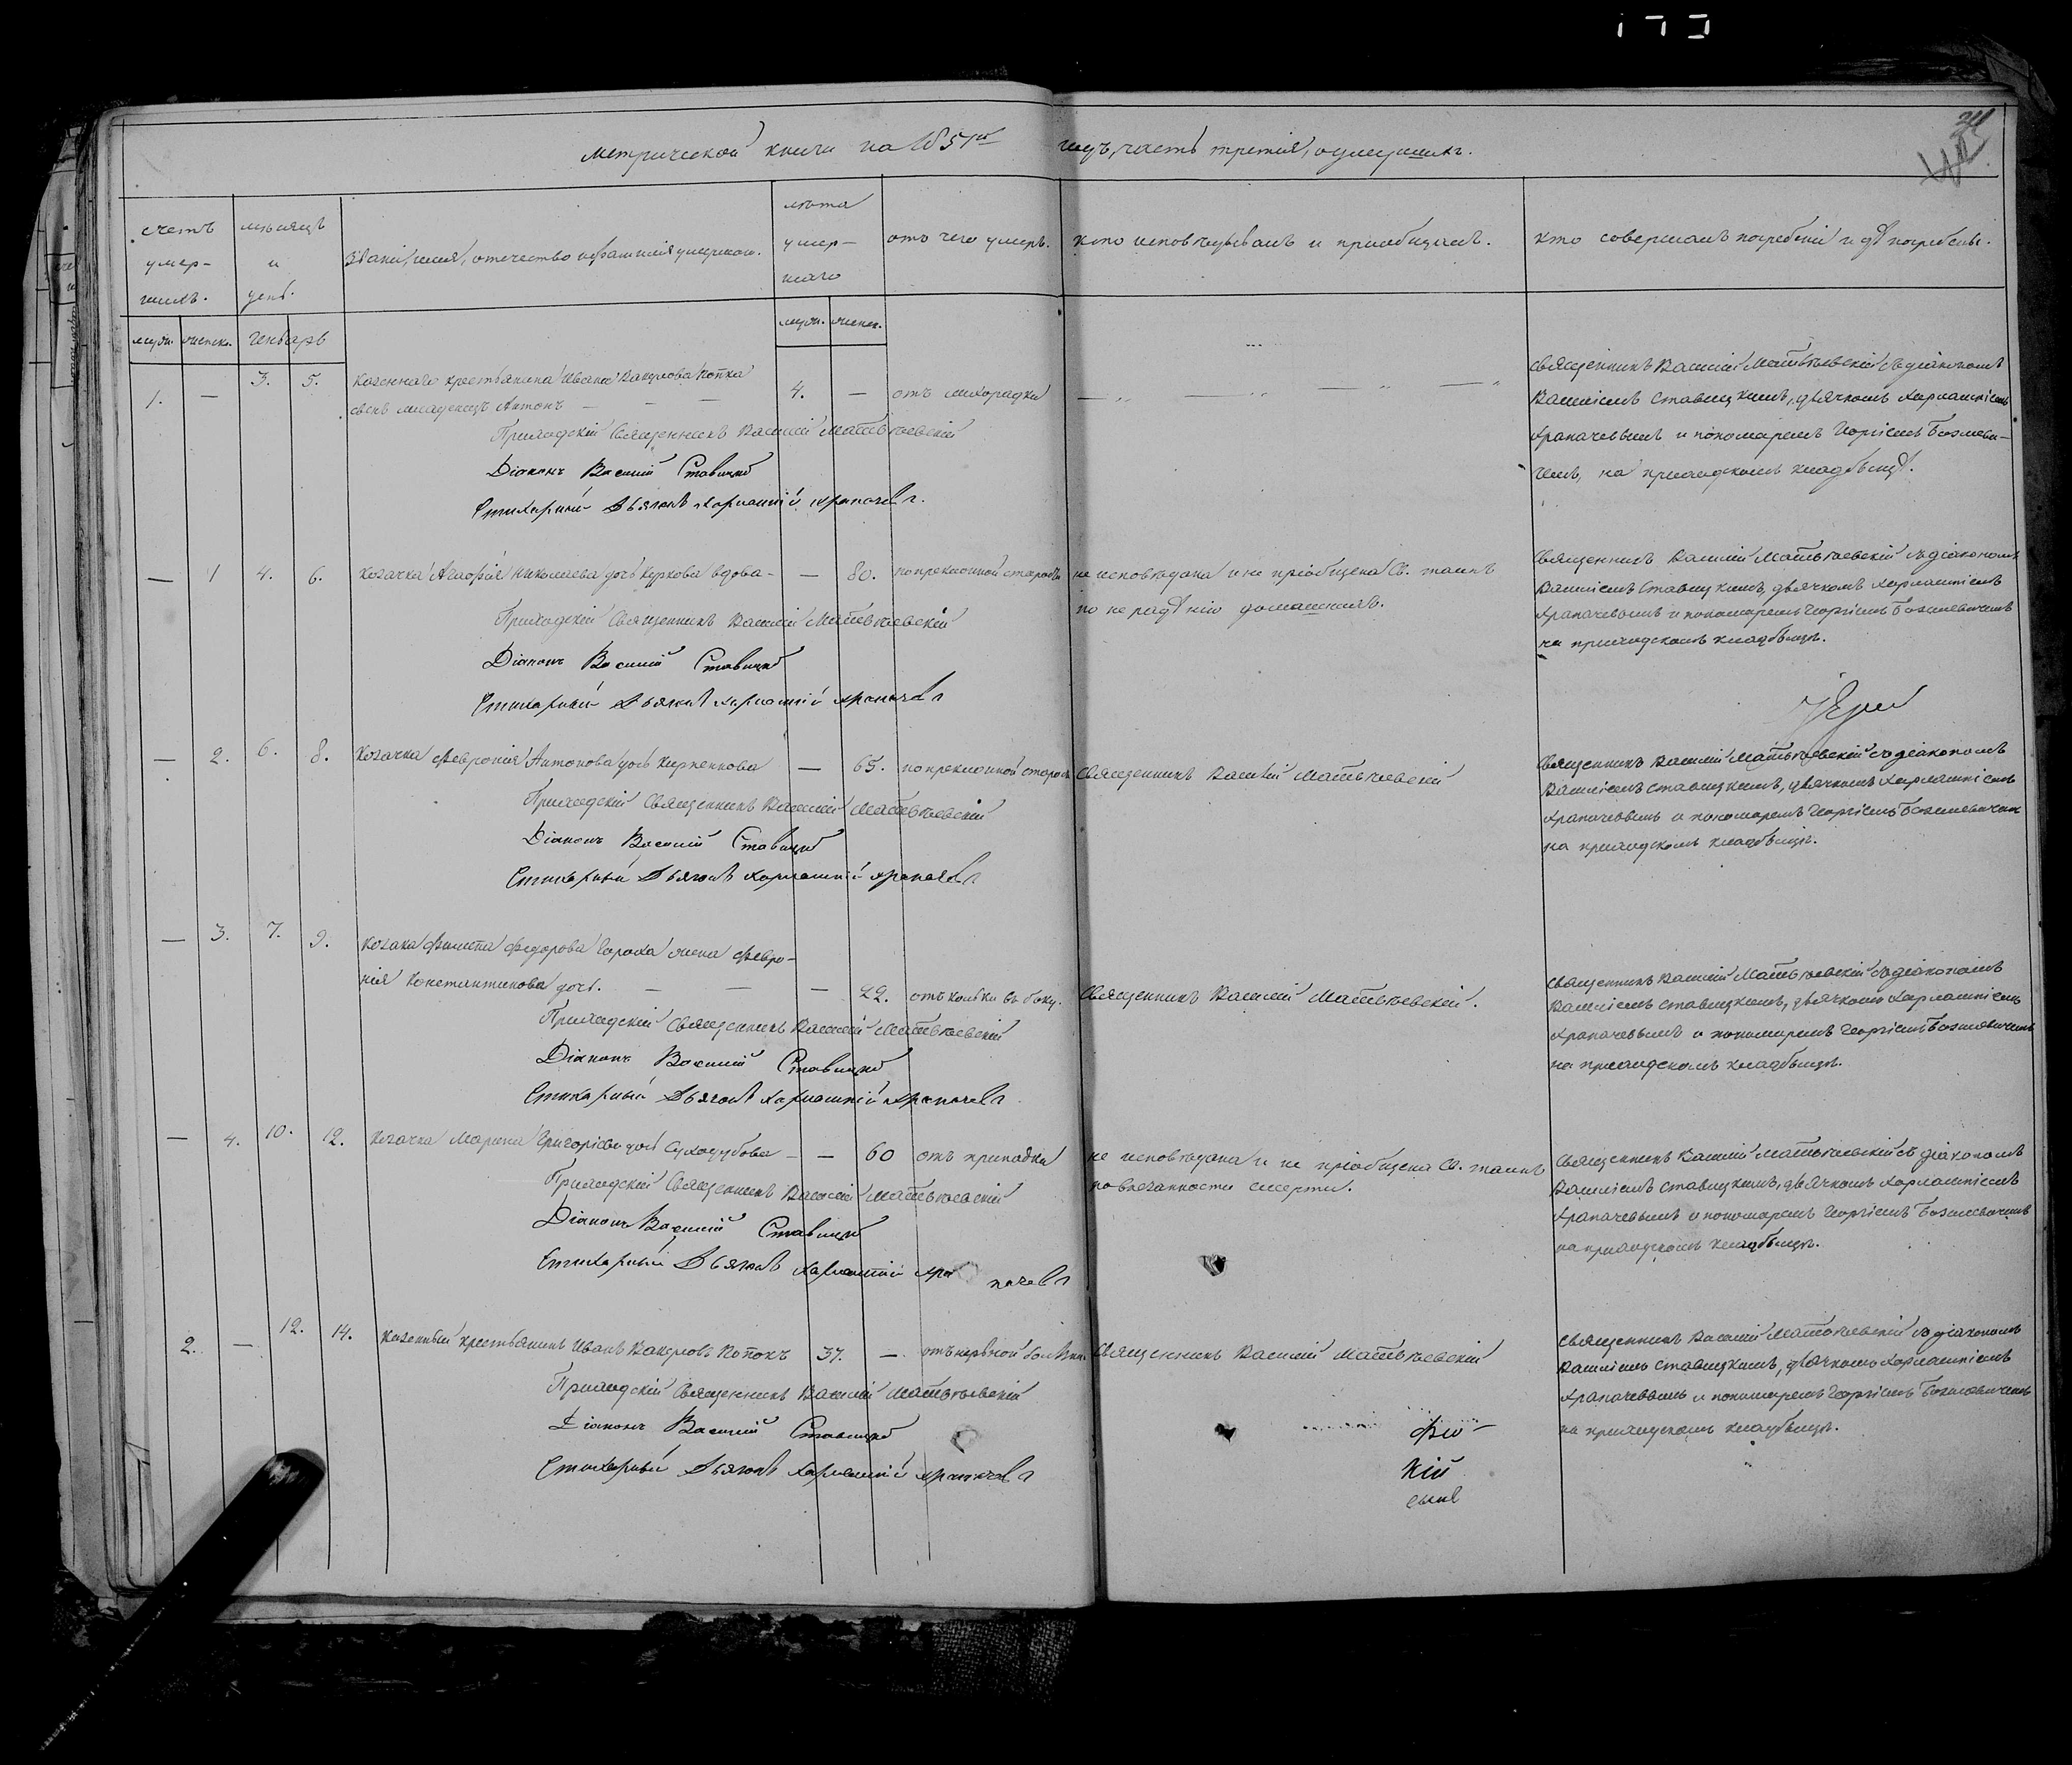 метрической книги на 1851й годъ, часть третія, о умершихъ.
счетъ умер-шихъ.
мѣсяцъ и день.
званіе, имя, отечество и фамилія умершаго.
лѣта умер-шаго
отъ чего умеръ.
кто исповѣдывалъ и пріобщалъ.
кто совершалъ погребеніе и гдѣ погребены.
муж. женск. Генварь муж. женск.
1. — 3. 5. казеннаго крестьянина Ивана Вакулова Попка
сынъ младенецъ Антонъ — — — 4. — отъ лихорадки
Приходскій Священникъ Василій Матвѣевскій
Діаконъ Василій Ставицкій
Стихарный Дьячокъ Харлампій Храпачевъ
Священникъ Василій Матвѣевскій съ діакономъ
Василіемъ Ставицкимъ, дьячкомъ Харлампіемъ
Храпачевымъ и пономаремъ Георгіемъ Божлеви-
чемъ, на приходскомъ кладбищѣ.
— 1 4. 6. козачка Агафія Николаева дочь Куркова вдова — — 80. по преклонной старости
не исповѣдана и не пріобщена Св. таинъ
по нерадѣнію домашнихъ.
Приходскій Священникъ Василій Матвѣевскій
Діаконъ Василій Ставицкій
Стихарный Дьячокъ Харлампій Храпачевъ
Священникъ Василій Матвѣевскій съ діакономъ
Василіемъ Ставицкимъ, дьячкомъ Харлампіемъ
Храпачевымъ и пономаремъ Георгіемъ Божлевичемъ
на приходскомъ кладбищѣ.
— 2. 6. 8. Козачка Февронія Антонова дочь — 65. по преклонной старости Священникъ Василій Матвѣевскій
Приходскій Священникъ Василій Матвѣевскій
Діаконъ Василій Ставицкій
Стихарный Дьячокъ Харлампій Храпачевъ
Священникъ Василій Матвѣевскій съ діакономъ
Василіемъ Ставицкимъ, дьячкомъ Харлампіемъ
Храпачевымъ и пономаремъ Георгіемъ Божлевичемъ
на приходскомъ кладбищѣ.
— 3. 7. 9. Козака Филипа Федорова Гороха жена Февро-
нія Константинова дочь. — — — 22. отъ кольки въ боку. Священникъ Василій Матвѣевскій.
Приходскій Священникъ Василій Матвѣевскій
Діаконъ Василій Ставицкій
Стихарный Дьячокъ Харлампій Храпачевъ
Священникъ Василій Матвѣевскій съ діакономъ
Василіемъ Ставицкимъ, дьячкомъ Харлампіемъ
Храпачевымъ и пономаремъ Георгіемъ Божлевичемъ
на приходскомъ кладбищѣ.
— 4. 10. 12. Козачка Марина Григорьева дочь Суходубова — — 60 отъ припадка
не исповѣдана и не пріобщена Св. таинъ
по внезапности смерти.
Приходскій Священникъ Василій Матвѣевскій
Діаконъ Василій Ставицкій
Стихарный Дьячокъ Харлампій Храпачевъ
Священникъ Василій Матвѣевскій съ діакономъ
Василіемъ Ставицкимъ, дьячкомъ Харлампіемъ
Храпачевымъ и пономаремъ Георгіемъ Божлевичемъ
на приходскомъ кладбищѣ.
2. — 12. 14. Казенный крестьянинъ Иванъ Вакуловъ Попокъ 37. — отъ нервной болѣзни Священникъ Василій Матвѣевскій
Приходскій Священникъ Василій Матвѣевскій
Діаконъ Василій Ставицкій
Стихарный Дьячокъ Харлампій Храпачевъ
Священникъ Василій Матвѣевскій съ діакономъ
Василіемъ Ставицкимъ, дьячкомъ Харлампіемъ
Храпачевымъ и пономаремъ Георгіемъ Божлевичемъ
на приходскомъ кладбищѣ.
кій